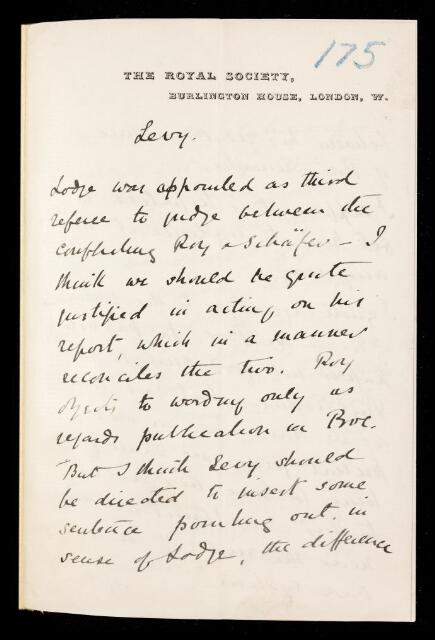 175
THE ROYAL SOCIETY,
BURLINGTON HOUSE, LONDON, W.
Levy.
Lodge was appointed as third
referee to judge between the
conflicting Roy & Schäfer – I
think we should be quite
justified in acting on his
report, which in a manner
reconciles the two. Roy
objects to wording only as
regards publication in Proc.
But I think Levy should
be directed to insert some
sentence pointing out, in
sense of Lodge, the difference